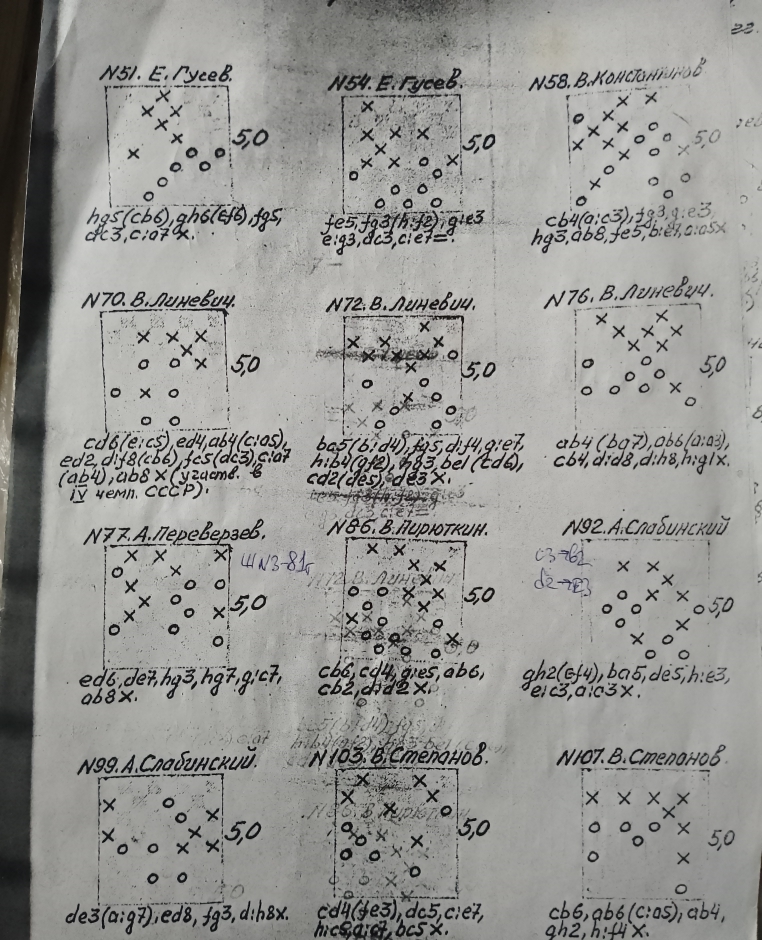 22.
N51. Е. Гусев.
5,0
hg5(cb6), gh6(ef6), fg5,
dc3, c:a7 x.
N54. Е. Гусев.
5,0
fe5, fg3(h:f2), g:e3
e:g3, dc3, c:e7=.
N58. В. Константинов
5,0
cb4(a:c3), fg3, g:e3,
hg3, ab8, fe5, b:e7, a:a5x
N70. В. Линевич.
5,0
cd6(e:c5), ed4, ab4(c:a5),
ed2, d:f8(cb6), fc5(dc3), c:a7
(ab4), ab8 x (участв. в
IV чемп. СССР).
N72. В. Линевич.
5,0
ba5(b:d4), fg5, d:f4, g:e7,
h:b4(gf2), hg3, be1(cd6),
cd2(de5), de3 x.
N76. В. Линевич.
5,0
ab4(ba7), ab6(a:a3),
cb4, d:d8, d:h8, h:g1x.
N77. А. Переверзев.
Ш N3-81г
5,0
ed6, de7, hg3, hg7, g:c7,
ab8 x.
N86. В. Пирюткин.
5,0
cb6, cd4, g:e5, ab6,
cb2, d:d2 x.
N92. А. Слабинский
5,0
gh2(ef4), ba5, de5, h:e3,
e:c3, a:c3 x.
N99. А. Слабинский.
5,0
de3(a:g7), ed8, fg3, d:h8x.
N103. В. Степанов.
5,0
cd4(fe3), dc5, c:e7,
h:c8, a:c7, bc5 x.
N107. В. Степанов
5,0
cb6, ab6(c:a5), ab4,
gh2, h:f4 x.